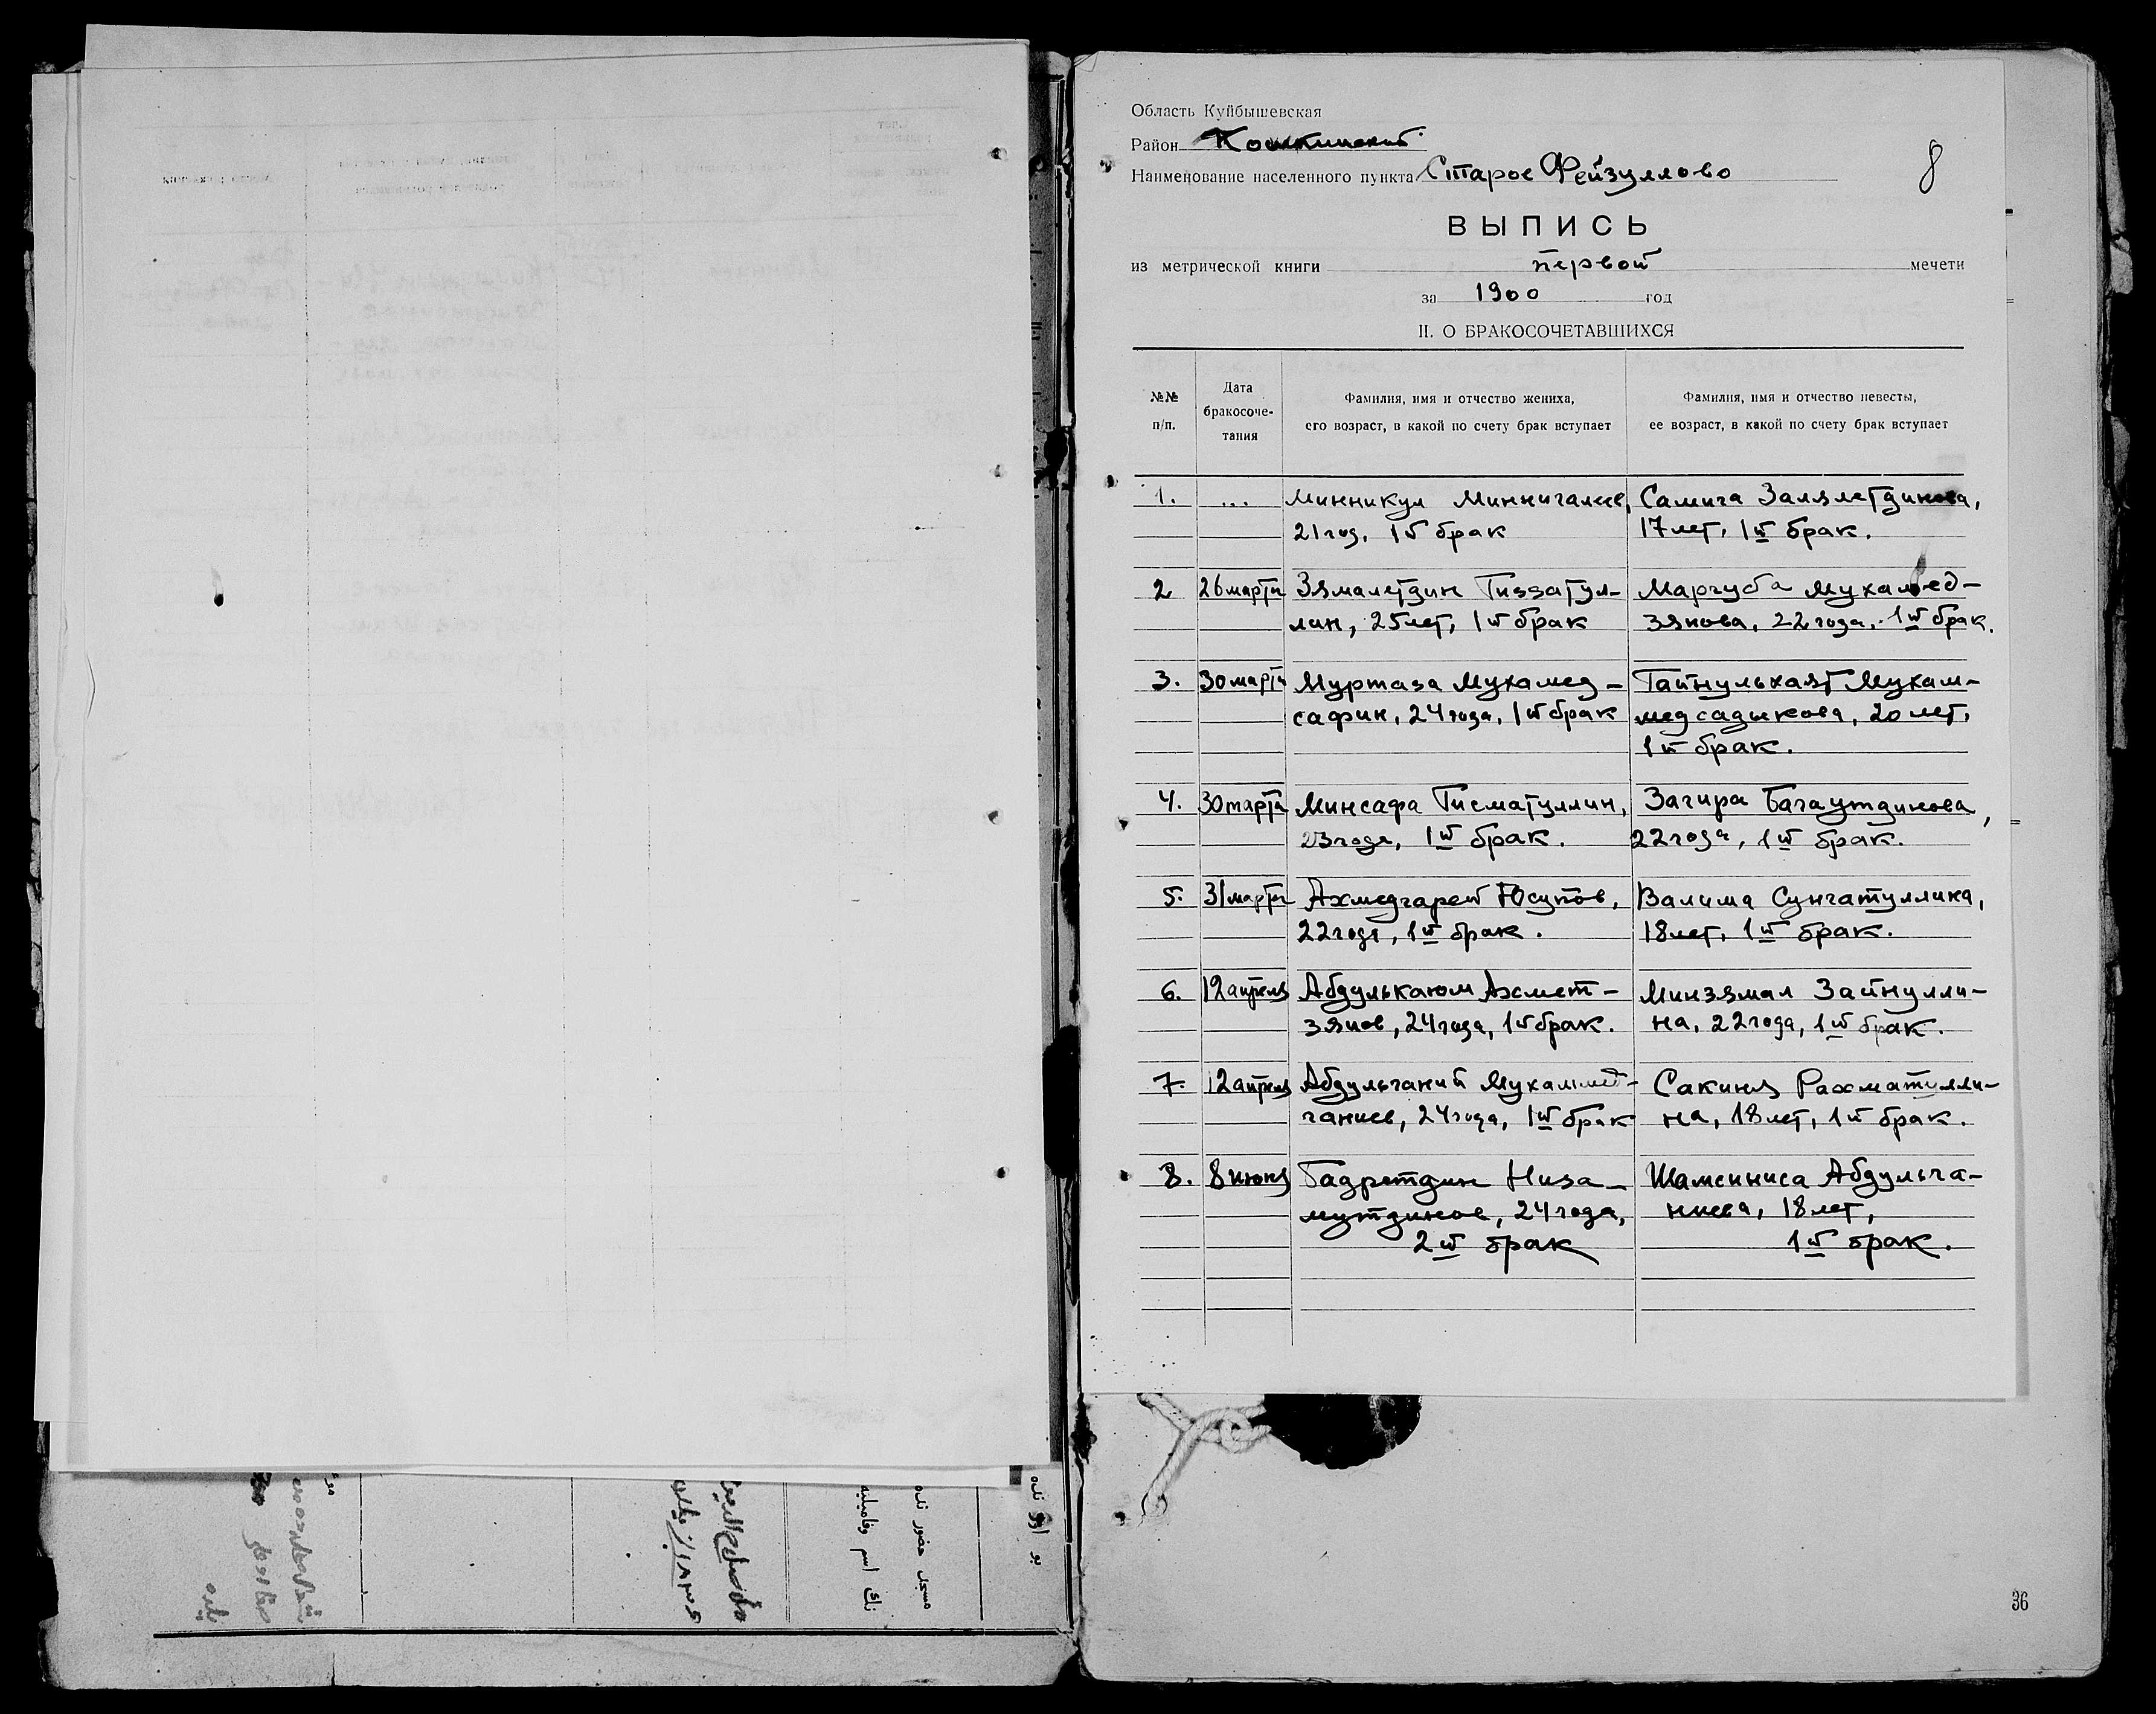 Область Куйбышевская
Район Кошкинский
Наименование населенного пункта Старое Фейзуллово
8
ВЫПИСЬ
из метрической книги первой мечети
за 1900 год
II. О БРАКОСОЧЕТАВШИХСЯ
№№ п/п.
Дата бракосоче-тания
Фамилия, имя и отчество жениха,
его возраст, в какой по счету брак вступает
Фамилия, имя и отчество невесты,
ее возраст, в какой по счету брак вступает
1. ... Минникул Миннигалеев, Самига Залялетдинова,
21 год, 1й брак 17 лет, 1й брак.
2 26 марта Зямалетдин Гиззатул- Маргуба Мухамед-
лин, 25 лет, 1й брак зянова, 22 года, 1й брак.
3. 30 марта Муртаза Мухамед- Гайнульхаят Мухам-
сафин, 24 года, 1й брак медсадыкова, 20 лет,
1й брак.
4. 30 марта Минсафа Гисматуллин, Загира Багаутдинова,
23 года, 1й брак. 22 года, 1й брак.
5. 31 марта Ахмедгарей Юсупов, Валима Сунгатуллина,
22 года, 1й брак. 18 лет, 1й брак.
6. 12 апреля Абдулькаюм Ахмет- Минзямал Зайнулли-
зянов, 24 года, 1й брак. на, 22 года, 1й брак.
7. 12 апреля Абдульганий Мухаммед- Сакиня Рахматулли-
ганиев, 24 года, 1й брак на, 18 лет, 1й брак.
8. 8 июня Бадретдин Низа- Шамсиниса Абдульга-
мутдинов, 24 года, ниева, 18 лет,
2й брак 1й брак.
36